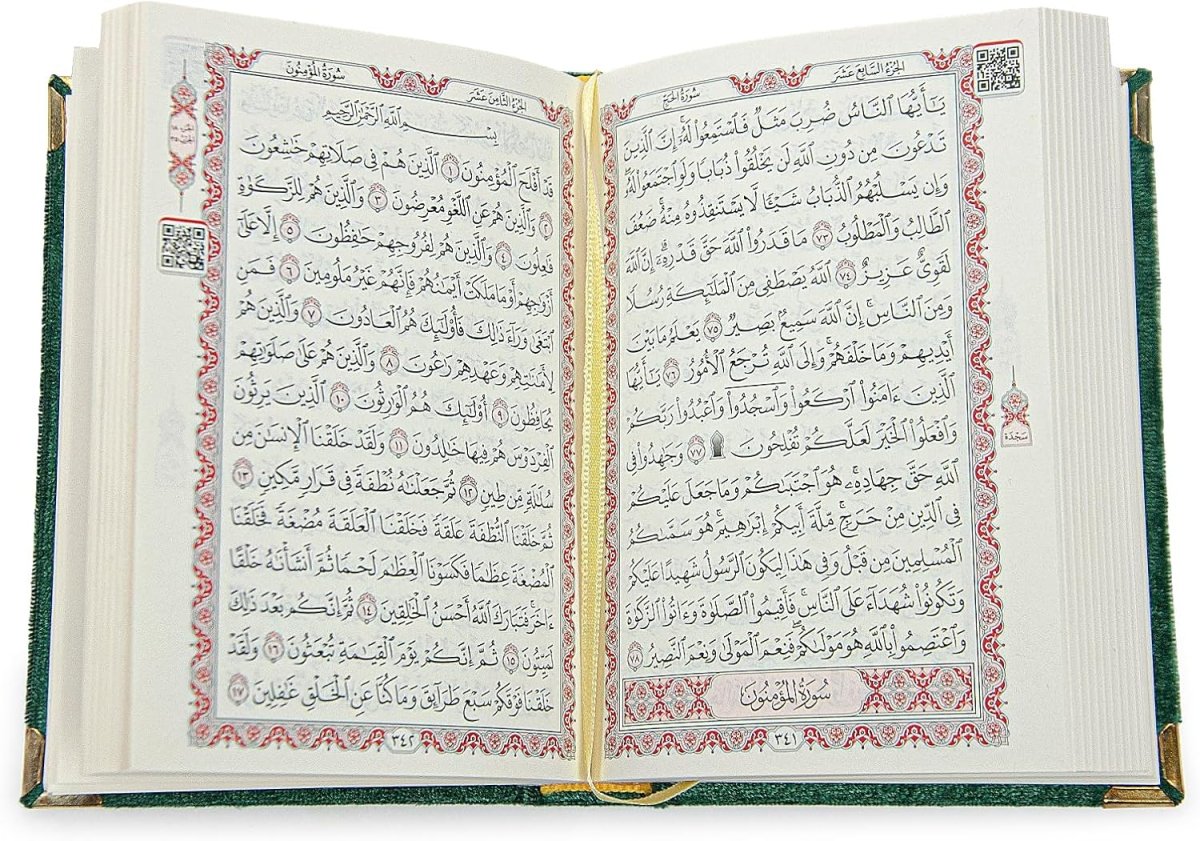 الجزء السابع عشر
سورة الحج
يَٰٓأَيُّهَا ٱلنَّاسُ ضُرِبَ مَثَلٌ فَٱسْتَمِعُوا۟ لَهُۥٓ إِنَّ ٱلَّذِينَ
تَدْعُونَ مِن دُونِ ٱللَّهِ لَن يَخْلُقُوا۟ ذُبَابًا وَلَوِ ٱجْتَمَعُوا۟ لَهُۥ
وَإِن يَسْلُبْهُمُ ٱلذُّبَابُ شَيْـًٔا لَّا يَسْتَنقِذُوهُ مِنْهُ ضَعُفَ
ٱلطَّالِبُ وَٱلْمَطْلُوبُ ٧٣ مَا قَدَرُوا۟ ٱللَّهَ حَقَّ قَدْرِهِۦٓ إِنَّ ٱللَّهَ
لَقَوِىٌّ عَزِيزٌ ٧٤ ٱللَّهُ يَصْطَفِى مِنَ ٱلْمَلَٰٓئِكَةِ رُسُلًا
وَمِنَ ٱلنَّاسِ إِنَّ ٱللَّهَ سَمِيعٌۢ بَصِيرٌ ٧٥ يَعْلَمُ مَا بَيْنَ
أَيْدِيهِمْ وَمَا خَلْفَهُمْ وَإِلَى ٱللَّهِ تُرْجَعُ ٱلْأُمُورُ ٧٦ يَٰٓأَيُّهَا
ٱلَّذِينَ ءَامَنُوا۟ ٱرْكَعُوا۟ وَٱسْجُدُوا۟ وَٱعْبُدُوا۟ رَبَّكُمْ
وَٱفْعَلُوا۟ ٱلْخَيْرَ لَعَلَّكُمْ تُفْلِحُونَ ۩ ٧٧ وَجَٰهِدُوا۟ فِى
ٱللَّهِ حَقَّ جِهَادِهِۦ هُوَ ٱجْتَبَىٰكُمْ وَمَا جَعَلَ عَلَيْكُمْ
فِى ٱلدِّينِ مِنْ حَرَجٍ مِّلَّةَ أَبِيكُمْ إِبْرَٰهِيمَ هُوَ سَمَّىٰكُمُ
ٱلْمُسْلِمِينَ مِن قَبْلُ وَفِى هَٰذَا لِيَكُونَ ٱلرَّسُولُ شَهِيدًا عَلَيْكُمْ
وَتَكُونُوا۟ شُهَدَآءَ عَلَى ٱلنَّاسِ فَأَقِيمُوا۟ ٱلصَّلَوٰةَ وَءَاتُوا۟ ٱلزَّكَوٰةَ
وَٱعْتَصِمُوا۟ بِٱللَّهِ هُوَ مَوْلَىٰكُمْ فَنِعْمَ ٱلْمَوْلَىٰ وَنِعْمَ ٱلنَّصِيرُ ٧٨
سورة المؤمنون
٣٤١
سجدة
الجزء الثامن عشر
سورة المؤمنون
بِسْمِ ٱللَّهِ ٱلرَّحْمَٰنِ ٱلرَّحِيمِ
قَدْ أَفْلَحَ ٱلْمُؤْمِنُونَ ١ ٱلَّذِينَ هُمْ فِى صَلَاتِهِمْ خَٰشِعُونَ
٢ وَٱلَّذِينَ هُمْ عَنِ ٱللَّغْوِ مُعْرِضُونَ ٣ وَٱلَّذِينَ هُمْ لِلزَّكَوٰةِ
فَٰعِلُونَ ٤ وَٱلَّذِينَ هُمْ لِفُرُوجِهِمْ حَٰفِظُونَ ٥ إِلَّا عَلَىٰٓ
أَزْوَٰجِهِمْ أَوْ مَا مَلَكَتْ أَيْمَٰنُهُمْ فَإِنَّهُمْ غَيْرُ مَلُومِينَ ٦ فَمَنِ
ٱبْتَغَىٰ وَرَآءَ ذَٰلِكَ فَأُو۟لَٰٓئِكَ هُمُ ٱلْعَادُونَ ٧ وَٱلَّذِينَ هُمْ
لِأَمَٰنَٰتِهِمْ وَعَهْدِهِمْ رَٰعُونَ ٨ وَٱلَّذِينَ هُمْ عَلَىٰ صَلَوَٰتِهِمْ
يُحَافِظُونَ ٩ أُو۟لَٰٓئِكَ هُمُ ٱلْوَٰرِثُونَ ١٠ ٱلَّذِينَ يَرِثُونَ
ٱلْفِرْدَوْسَ هُمْ فِيهَا خَٰلِدُونَ ١١ وَلَقَدْ خَلَقْنَا ٱلْإِنسَٰنَ مِن
سُلَٰلَةٍ مِّن طِينٍ ١٢ ثُمَّ جَعَلْنَٰهُ نُطْفَةً فِى قَرَارٍ مَّكِينٍ ١٣
ثُمَّ خَلَقْنَا ٱلنُّطْفَةَ عَلَقَةً فَخَلَقْنَا ٱلْعَلَقَةَ مُضْغَةً فَخَلَقْنَا
ٱلْمُضْغَةَ عِظَٰمًا فَكَسَوْنَا ٱلْعِظَٰمَ لَحْمًا ثُمَّ أَنشَأْنَٰهُ خَلْقًا
ءَاخَرَ فَتَبَارَكَ ٱللَّهُ أَحْسَنُ ٱلْخَٰلِقِينَ ١٤ ثُمَّ إِنَّكُم بَعْدَ ذَٰلِكَ
لَمَيِّتُونَ ١٥ ثُمَّ إِنَّكُمْ يَوْمَ ٱلْقِيَٰمَةِ تُبْعَثُونَ ١٦ وَلَقَدْ
خَلَقْنَا فَوْقَكُمْ سَبْعَ طَرَآئِقَ وَمَا كُنَّا عَنِ ٱلْخَلْقِ غَٰفِلِينَ ١٧
٣٤٢